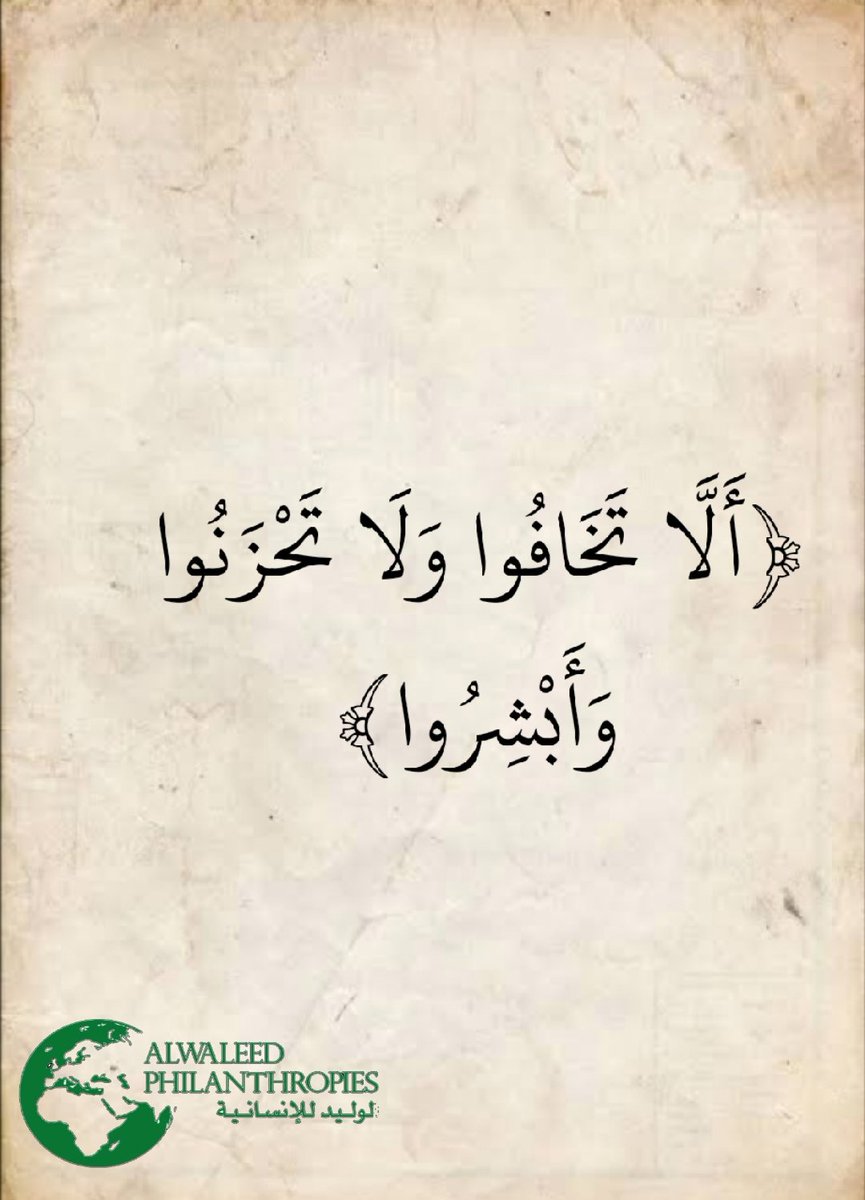 ﴿أَلَّا تَخَافُوا وَلَا تَحْزَنُوا
وَأَبْشِرُوا﴾
ALWALEED
PHILANTHROPIES
لوليد للإنسانية